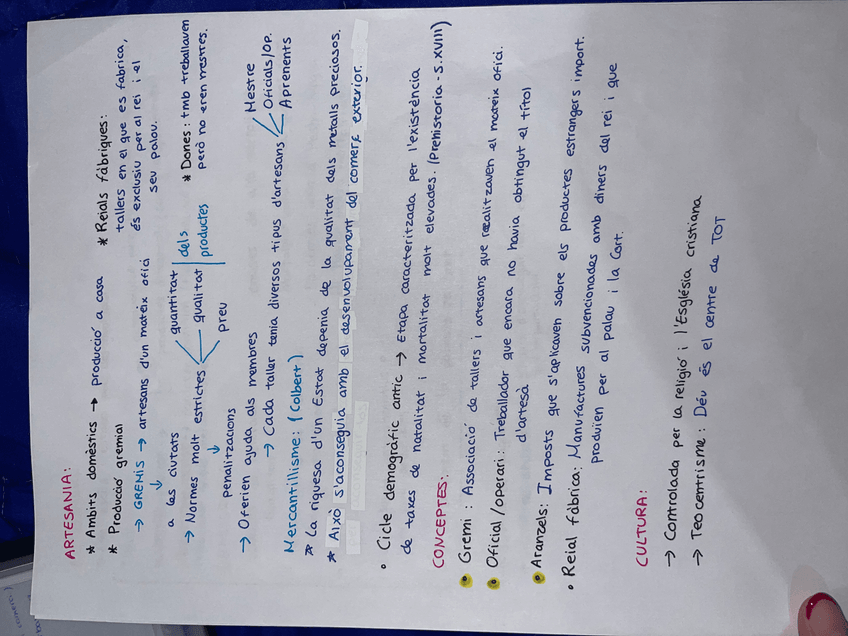 ARTESANIA:
* Ambits domèstics → producció a casa
* Producció gremial
→ GREMIS → artesans d'un mateix ofici
↓
a les ciutats
→ Normes molt estrictes
quantitat
qualitat
preu
dels
productes
↓
penalitzacions
→ Oferien ajuda als membres
→ Cada taller tenia diversos tipus d'artesans
Mestre
Oficials/OP.
Aprenents
* Reials fàbriques:
tallers en el que es fabrica,
és exclusiu per al rei i el
seu palau.
* Dones: tmb treballaven
però no eren mestres.
Mercantillisme: (Colbert)
* La riquesa d'un Estat depenia de la qualitat dels metalls preciosos.
* Això s'aconseguia amb el desenvolupament del comerç exterior.
• Cicle demogràfic antic → Etapa caracteritzada per l'existència
de taxes de natalitat i mortalitat molt elevades. (Prehistoria - s. XVIII)
CONCEPTES:
• Gremi: Associació de tallers i artesans que realitzaven el mateix ofici.
• Oficial/operari: Treballador que encara no havia obtingut el títol
d'artesà
• Aranzels: Imposts que s'aplicaven sobre els productes estrangers import.
• Reial fàbrica: Manufactures subvencionades amb diners del rei i que
produïen per al palau i la Cort.
CULTURA:
→ Controlada per la religió i l'Església cristiana
→ Teocentrisme: Déu és el centre de TOT